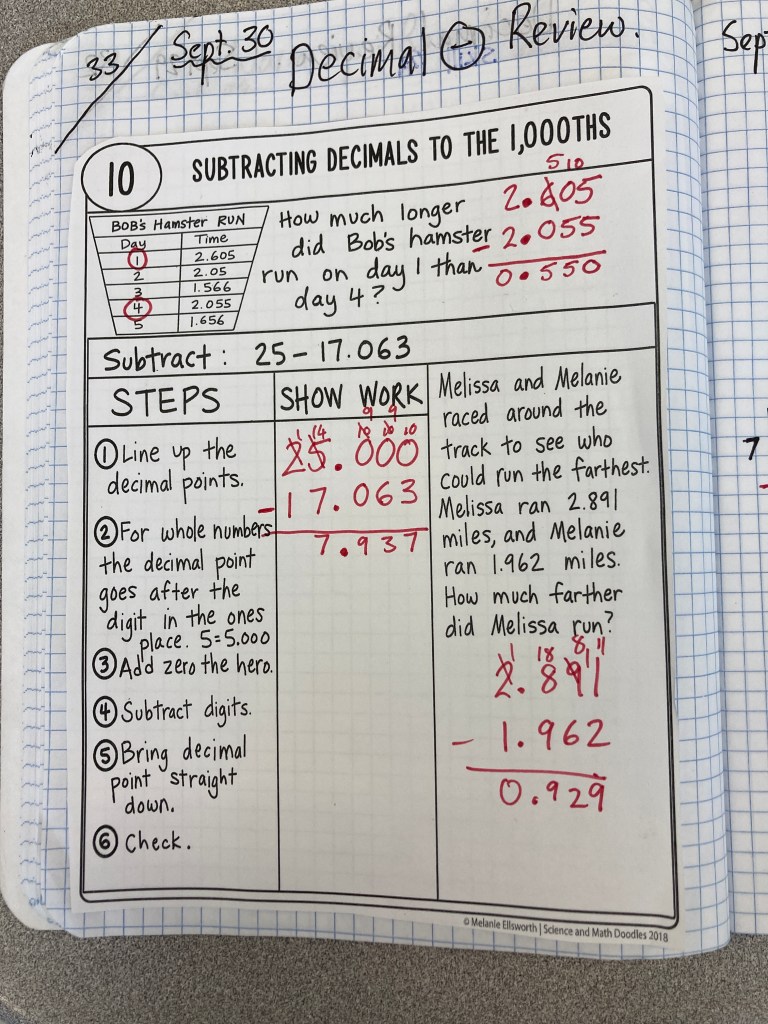 33/ Sept. 30 Decimal ⊖ Review.
Sep
10 SUBTRACTING DECIMALS TO THE 1,000THS
BOB'S Hamster RUN
Day Time
1 2.605
2 2.05
3 1.566
4 2.055
5 1.656
How much longer
did Bob's hamster
run on day 1 than
day 4?
5 10
2.605
- 2.055
0.550
Subtract: 25-17.063
STEPS
① Line up the
decimal points.
② For whole numbers
the decimal point
goes after the
digit in the ones
place. 5=5.000
③ Add zero the hero.
④ Subtract digits.
⑤ Bring decimal
point straight
down.
⑥ Check.
SHOW WORK
9 9
1 14 10 10 10
25.000
- 17.063
7.937
Melissa and Melanie
raced around the
track to see who
could run the farthest.
Melissa ran 2.891
miles, and Melanie
ran 1.962 miles.
How much farther
did Melissa run?
1 18 8 11
2.891
- 1.962
0.929
7
© Melanie Ellsworth | Science and Math Doodles 2018